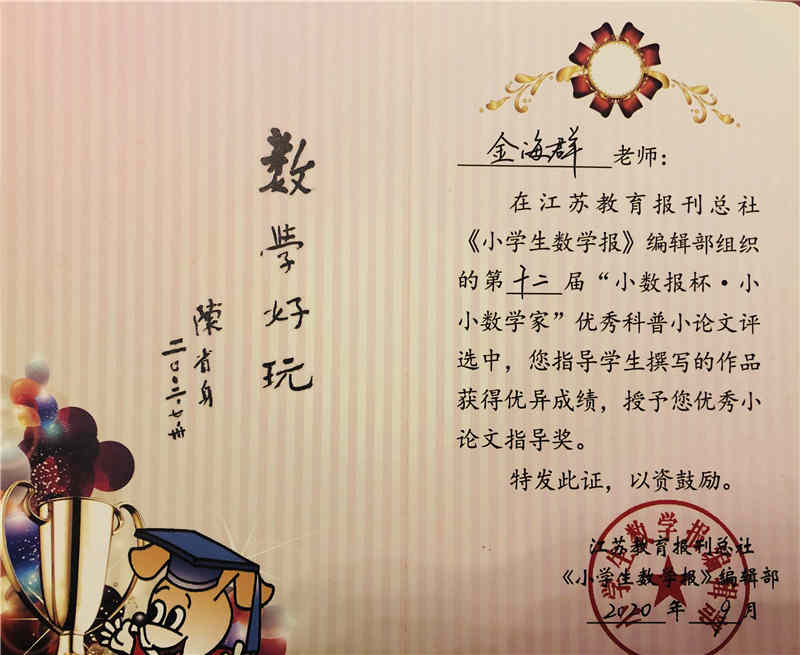 数学好玩
陳省身
二〇〇二·七
金海群 老师：
在江苏教育报刊总社
《小学生数学报》编辑部组织
的第十二届“小数报杯·小
小数学家”优秀科普小论文评
选中，您指导学生撰写的作品
获得优异成绩，授予您优秀小
论文指导奖。
特发此证，以资鼓励。
江苏教育报刊总社
《小学生数学报》编辑部
2020 年 9 月
小学生数学报编辑部